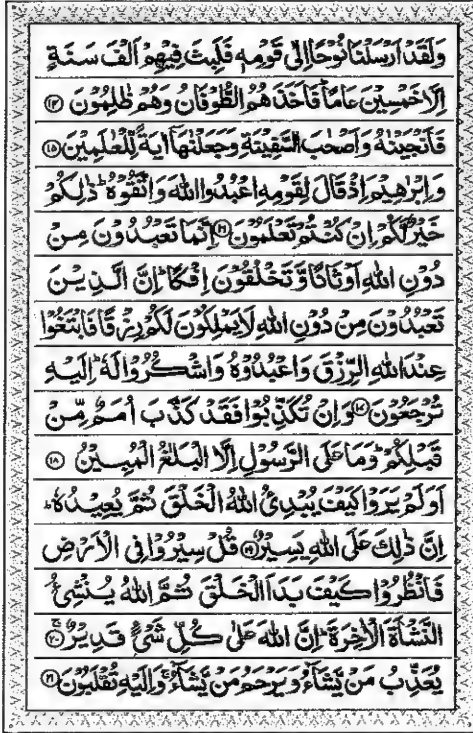 وَلَقَدْ اَرْسَلْنَا نُوْحًا اِلٰى قَوْمِهٖ فَلَبِثَ فِيْهِمْ اَلْفَ سَنَةٍ
اِلَّا خَمْسِيْنَ عَامًا ؕ فَاَخَذَهُمُ الطُّوْفَانُ وَهُمْ ظٰلِمُوْنَ ۝۱۴
فَاَنْجَيْنٰهُ وَاَصْحٰبَ السَّفِيْنَةِ وَجَعَلْنٰهَاۤ اٰيَةً لِّلْعٰلَمِيْنَ ۝۱۵
وَاِبْرٰهِيْمَ اِذْ قَالَ لِقَوْمِهِ اعْبُدُوا اللّٰهَ وَاتَّقُوْهُ ؕ ذٰلِكُمْ
خَيْرٌ لَّكُمْ اِنْ كُنْتُمْ تَعْلَمُوْنَ ۝۱۶ اِنَّمَا تَعْبُدُوْنَ مِنْ
دُوْنِ اللّٰهِ اَوْثَانًا وَّتَخْلُقُوْنَ اِفْكًا ؕ اِنَّ الَّذِيْنَ
تَعْبُدُوْنَ مِنْ دُوْنِ اللّٰهِ لَا يَمْلِكُوْنَ لَكُمْ رِزْقًا فَابْتَغُوْا
عِنْدَ اللّٰهِ الرِّزْقَ وَاعْبُدُوْهُ وَاشْكُرُوْا لَهٗ ؕ اِلَيْهِ
تُرْجَعُوْنَ ۝۱۷ وَاِنْ تُكَذِّبُوْا فَقَدْ كَذَّبَ اُمَمٌ مِّنْ
قَبْلِكُمْ ؕ وَمَا عَلَى الرَّسُوْلِ اِلَّا الْبَلٰغُ الْمُبِيْنُ ۝۱۸
اَوَلَمْ يَرَوْا كَيْفَ يُبْدِئُ اللّٰهُ الْخَلْقَ ثُمَّ يُعِيْدُهٗ ؕ
اِنَّ ذٰلِكَ عَلَى اللّٰهِ يَسِيْرٌ ۝۱۹ قُلْ سِيْرُوْا فِى الْاَرْضِ
فَانْظُرُوْا كَيْفَ بَدَاَ الْخَلْقَ ثُمَّ اللّٰهُ يُنْشِئُ
النَّشْاَةَ الْاٰخِرَةَ ؕ اِنَّ اللّٰهَ عَلٰى كُلِّ شَىْءٍ قَدِيْرٌ ۝۲۰
يُعَذِّبُ مَنْ يَّشَآءُ وَيَرْحَمُ مَنْ يَّشَآءُ ۚ وَاِلَيْهِ تُقْلَبُوْنَ ۝۲۱